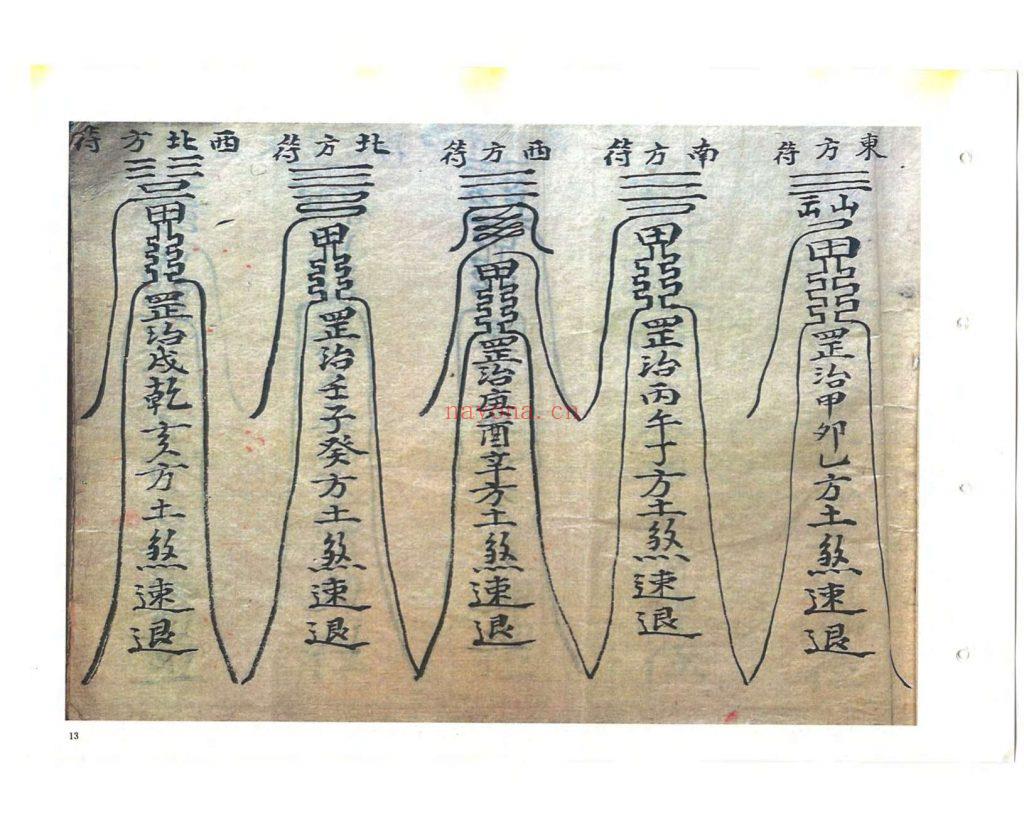 東方符
罡治甲卯乙方土煞速退
南方符
罡治丙午丁方土煞速退
西方符
罡治庚酉辛方土煞速退
北方符
罡治壬子癸方土煞速退
西北方符
罡治戌乾亥方土煞速退
nayona.cn
13